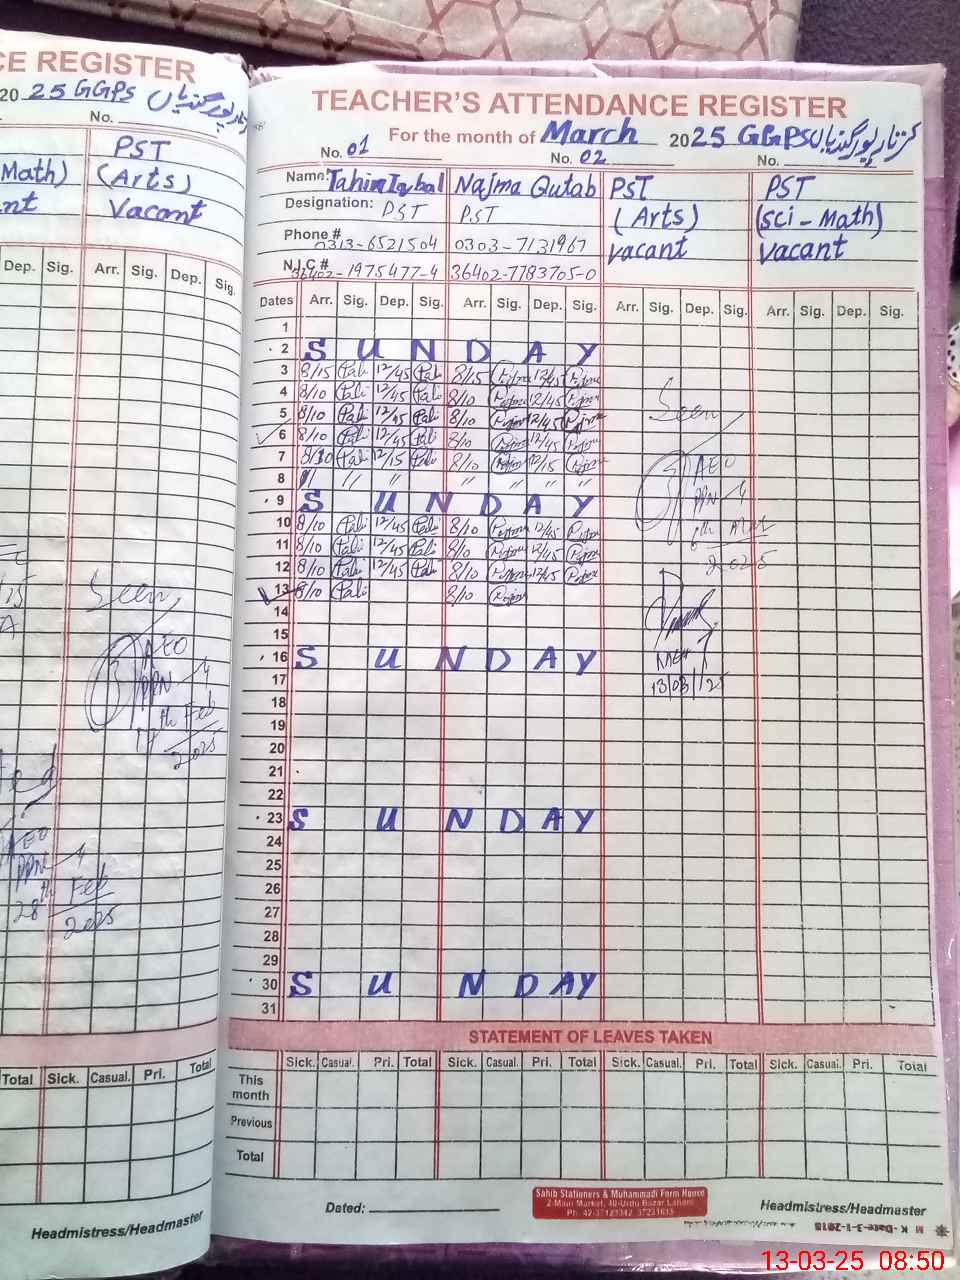 CE REGISTER
20 25 GGPS
No.
PST
Math) (Arts)
nt Vacant
Dep. Sig. Arr. Sig. Dep. Sig.
Seen
AEO
PPN - 4
Feb
2025
AEO
PPN 4
28th Feb
2025
Total Sick. Casual. Pri. Total
Headmistress/Headmaster
TEACHER'S ATTENDANCE REGISTER
For the month of March 2025 GGPS
No. 01 No. 02 No.
Name: Iqbal Najma Qutab PST PST
Designation: PST PST (Arts) (sci - Math)
Phone # 0313-6521504 0303-7131967 vacant vacant
N.I.C # 36402-1975477-4 36402-7783705-0
Dates Arr. Sig. Dep. Sig. Arr. Sig. Dep. Sig. Arr. Sig. Dep. Sig. Arr. Sig. Dep. Sig.
1
2 SUNDAY
3 8/15 12/45 8/15 12/45
4 8/10 12/45 8/10 12/45
5 8/10 12/45 8/10 12/45
6 8/10 12/45 8/10 12/45
7 12/15 8/10 12/15
8 〃 〃 〃 〃 〃 〃 〃
9 SUNDAY
10 8/10 12/45 8/10 12/45
11 8/10 12/45 8/10 12/45
12 8/10 12/45 8/10 12/45
13 8/10 8/10
14
15
16 SUNDAY
17
18
19
20
21
22
23 SUNDAY
24
25
26
27
28
29
30 SUNDAY
31
Seen
AEO
PPN - 4
6th
2025
13/03/25
STATEMENT OF LEAVES TAKEN
Sick. Casual. Pri. Total Sick. Casual. Pri. Total Sick. Casual. Pri. Total Sick. Casual. Pri. Total
This month
Previous
Total
Dated:
Sahib Stationers & Muhammadi Form House
2-Main Market, 40-Urdu Bazar Lahore
Headmistress/Headmaster
13-03-25 08:50